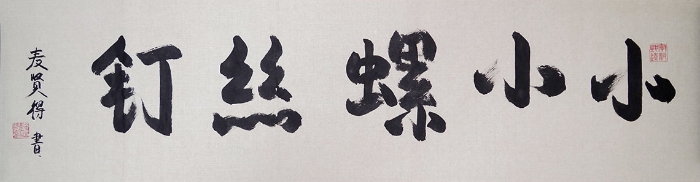 小小螺絲釘
麦賢得書